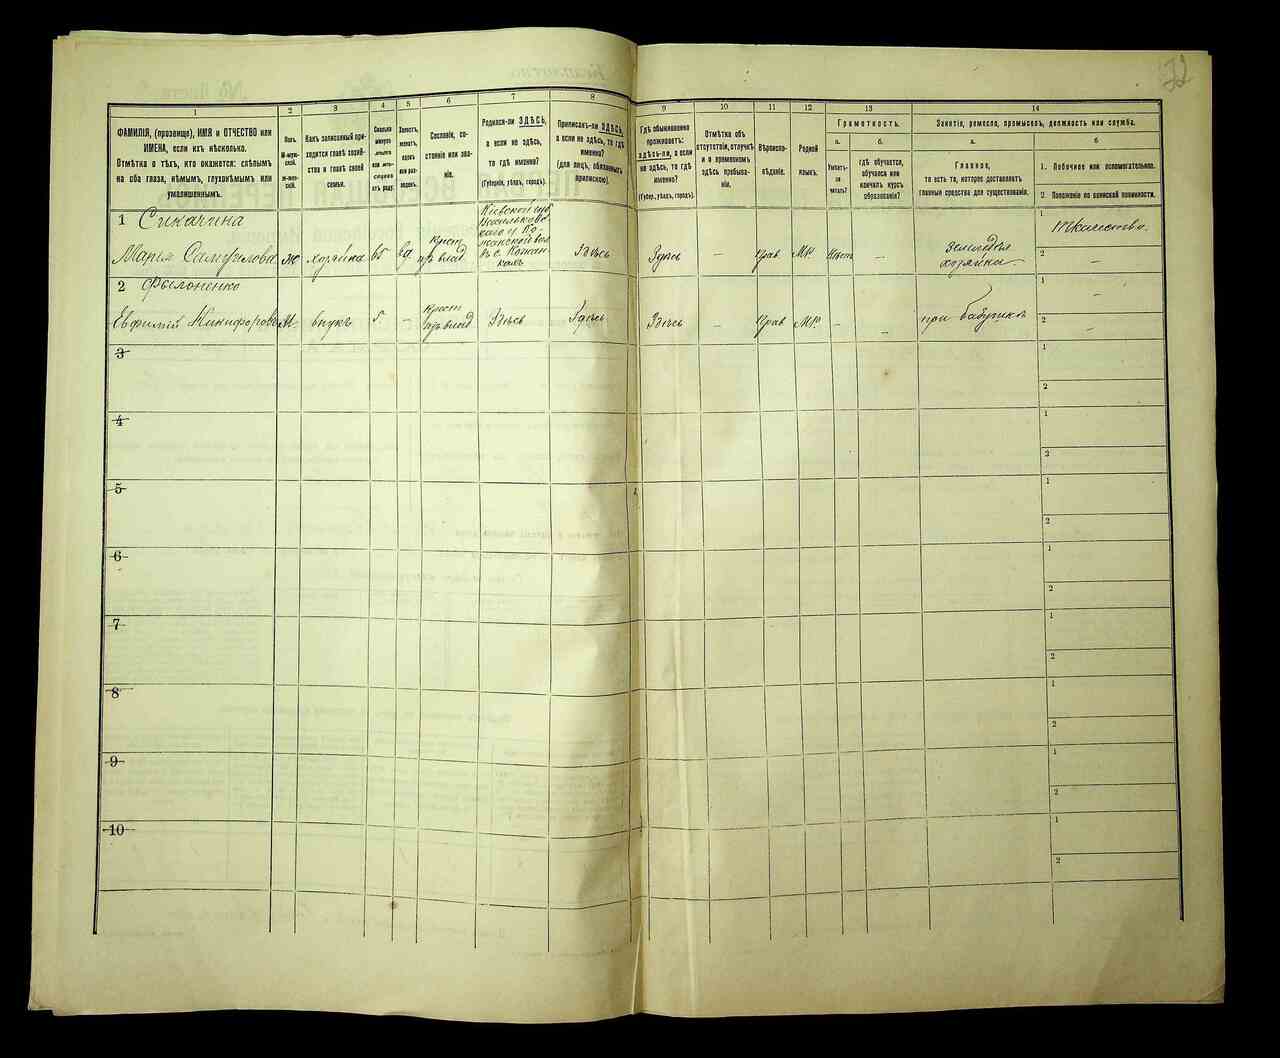 72
1
2
3
4
5
6
7
8
9
10
11
12
13
14
ФАМИЛІЯ, (прозвище), ИМЯ и ОТЧЕСТВО или
ИМЕНА, если ихъ нѣсколько.
Отмѣтка о тѣхъ, кто окажется: слѣпымъ
на оба глаза, нѣмымъ, глухонѣмымъ или
умалишеннымъ.
Полъ.
М-муж-
ской.
Ж-жен-
скій.
Какъ записанный при-
ходится главѣ хозяй-
ства и главѣ своей
семьи.
Сколько
минуло
лѣтъ
или мѣ-
сяцевъ
отъ роду.
Холостъ,
женатъ,
вдовъ
или раз-
веденъ.
Сословіе, со-
стояніе или зва-
ніе.
Родился-ли ЗДѢСЬ,
а если не здѣсь,
то гдѣ именно?
(Губернія, уѣздъ, городъ).
Приписанъ-ли ЗДѢСЬ,
а если не здѣсь, то гдѣ
именно?
(для лицъ, обязанныхъ
припискою).
Гдѣ обыкновенно
проживаетъ:
здѣсь-ли, а если
не здѣсь, то гдѣ
именно?
(Губерн., уѣздъ, городъ).
Отмѣтка объ
отсутствіи, отлучкѣ
и о временномъ
здѣсь пребыва-
ніи.
Вѣроиспо-
вѣданіе.
Родной
языкъ.
Грамотность.
а.
б.
Умѣетъ-
ли
читать?
гдѣ обучается,
обучался или
кончилъ курсъ
образованія?
Занятіе, ремесло, промыселъ, должность или служба.
а.
б
Главное,
то есть то, которое доставляетъ
главныя средства для существованія.
1. Побочное или вспомогательное.
2. Положеніе по воинской повинности.
1 Синачина
Марья Самуилова
ж
хозяйка
65
ва
Крест
изъ влад
Кіевской губ
Васильковс-
каго у. Ко-
жанской вол
въ с. Кожан-
кахъ
Здѣсь
Здѣсь
—
Прав
М.Р.
—
земледел
хозяйка
1
ткачество.
2
—
2 Филоненко
Евфимій Никифоровъ
М.
внукъ
5
—
Крест
изъ влад
Здѣсь
Здѣсь
Здѣсь
—
Прав
М.Р.
—
—
при бабушкѣ
1
—
2
—
3
1
2
4
1
2
5
1
2
6
1
2
7
1
2
8
1
2
9
1
2
10
1
2